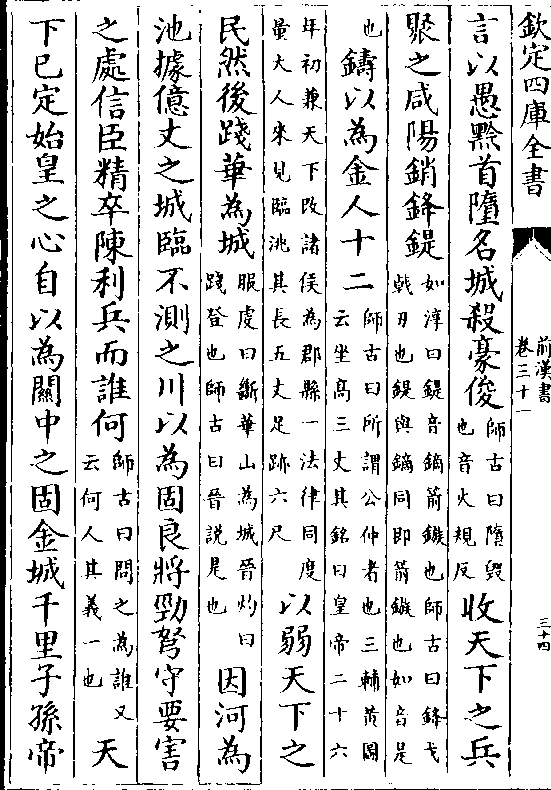 欽定四庫全書
前漢書
卷三十一
三十四
言以愚黔首墮名城殺豪俊師古曰墮毁也音火規反收天下之兵
聚之咸陽銷鋒鍉如淳曰鍉音鏑箭鏃也師古曰鋒戈戟刃也鍉與鏑同即箭鏃也如音是
也鑄以為金人十二師古曰所謂公仲者也三輔黄圖云坐髙三丈其銘曰皇帝二十六
年初兼天下改諸侯為郡縣一法律同度量大人來見臨洮其長五丈足跡六尺以弱天下之
民然後踐華為城服虔曰斷華山為城晉灼曰踐登也師古曰晉説是也因河為
池據億丈之城臨不測之川以為固良將勁弩守要害
之處信臣精卒陳利兵而誰何師古曰問之為誰又云何人其義一也天
下已定始皇之心自以為關中之固金城千里子孫帝